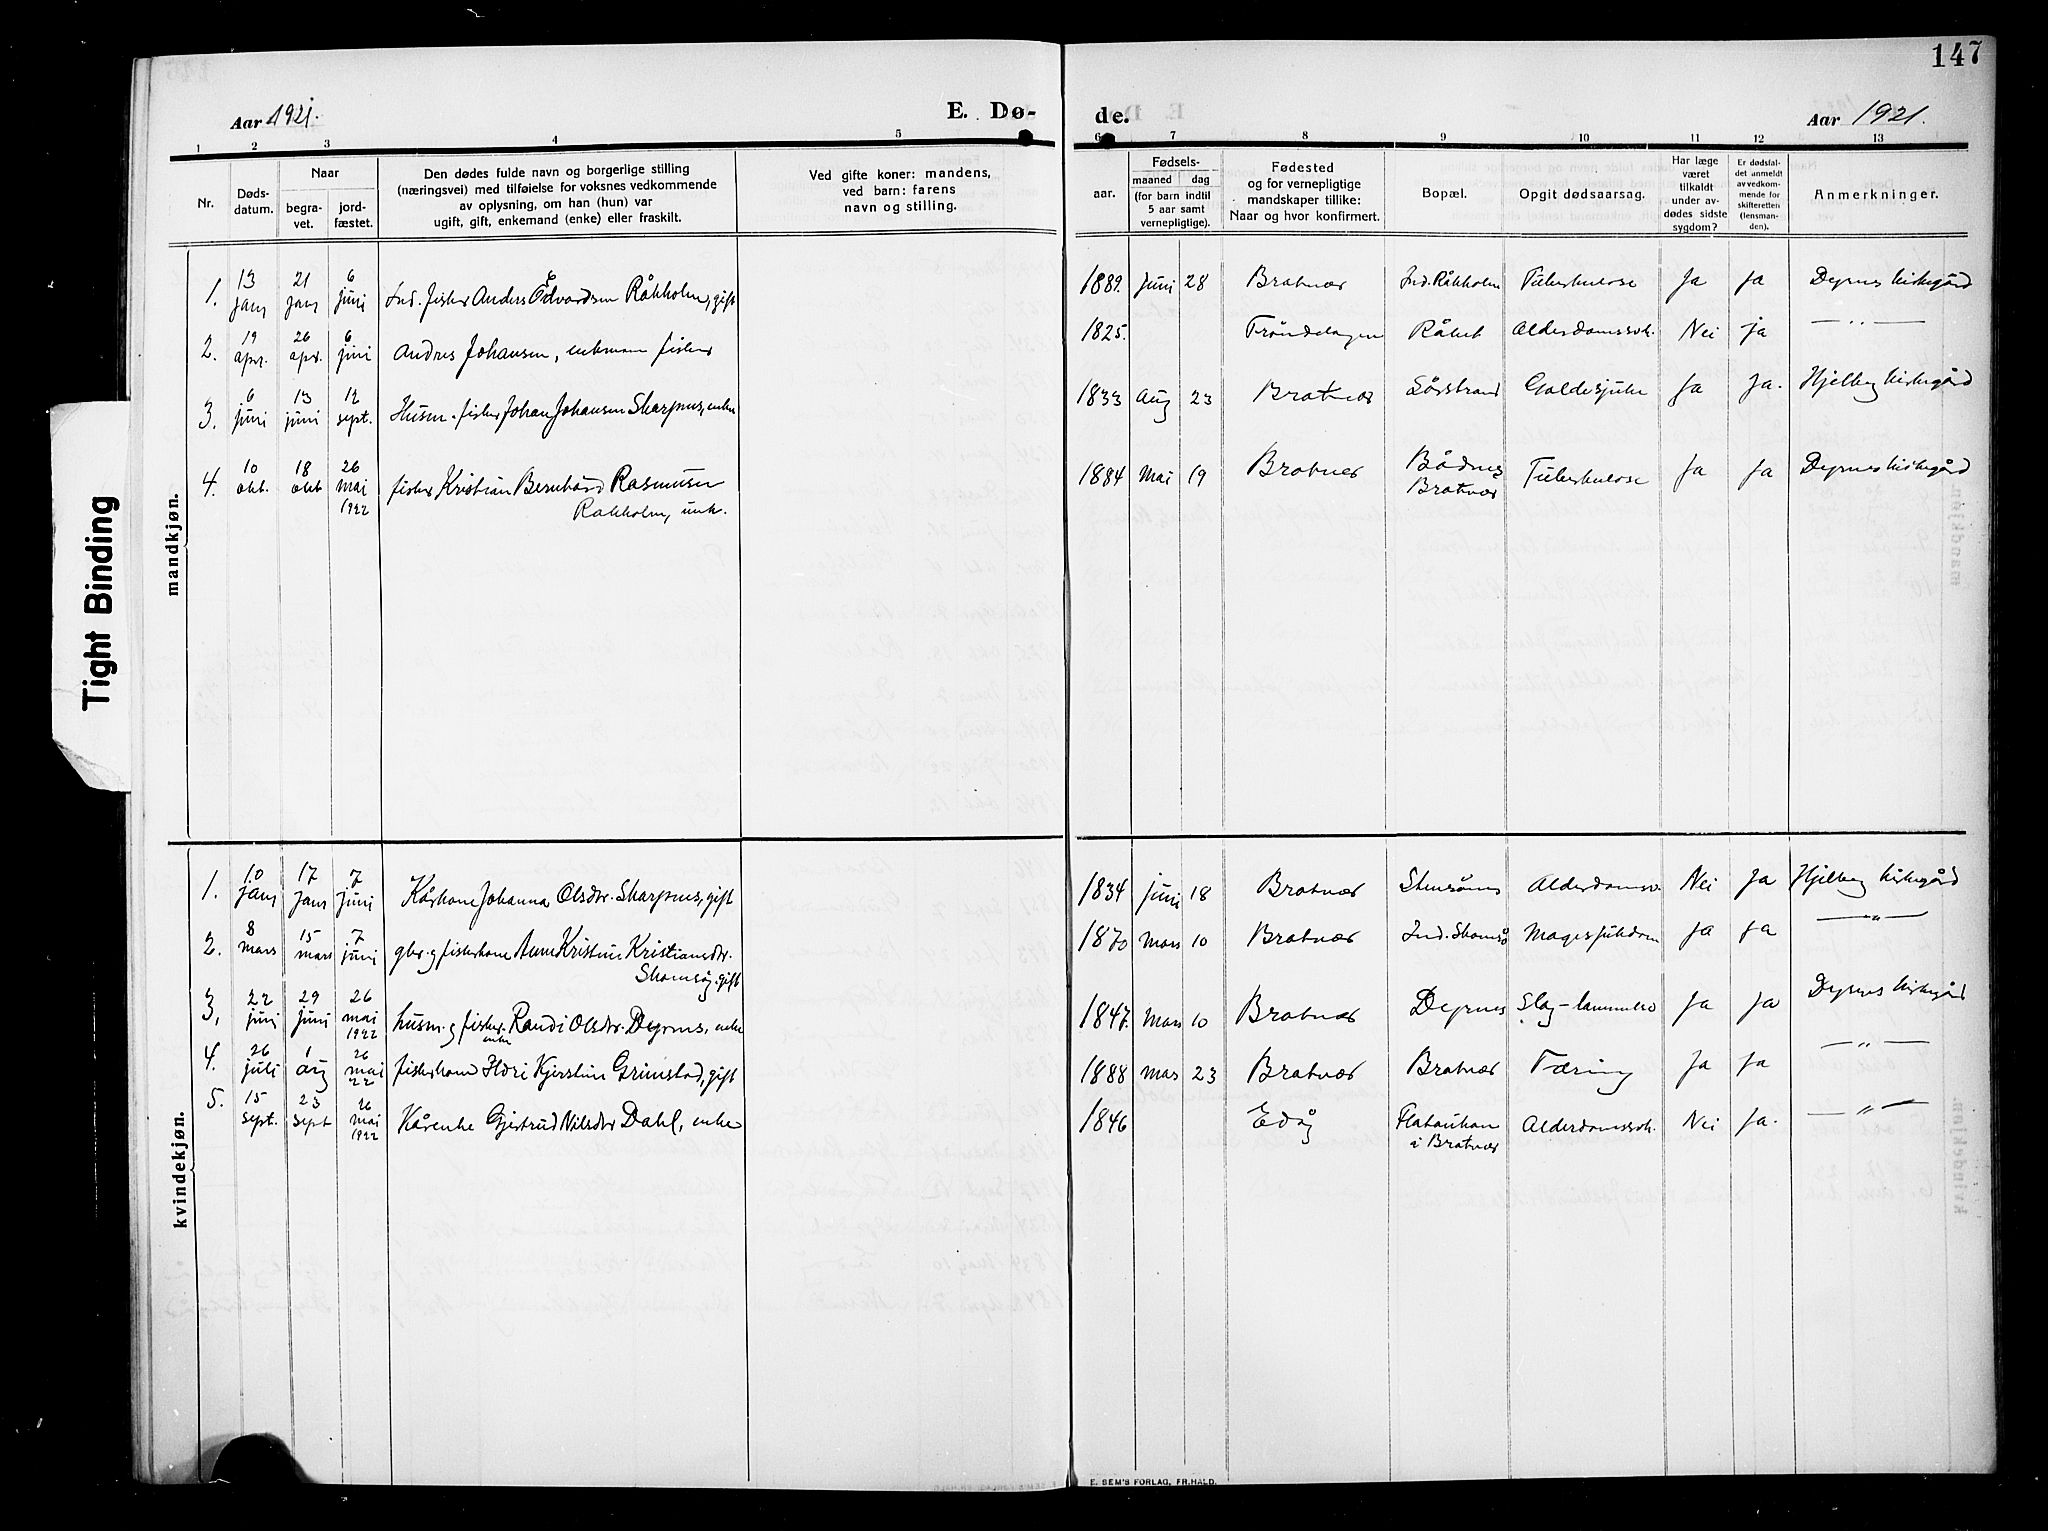 147
Aar 1921. E. Dø- de. Aar 1921.
1 2 3 4 5 6 7 8 9 10 11 12 13
Nr. Døds-datum. Naar begra-vet. jord-fæstet. Den dødes fulde navn og borgerlige stilling (næringsvei) med tilføielse for voksnes vedkommende av oplysning, om han (hun) var ugift, gift, enkemand (enke) eller fraskilt. Ved gifte koner: mandens, ved barn: farens navn og stilling. aar. Fødsels- maaned dag (for barn indtil 5 aar samt vernepligtige). Fødested og for vernepligtige mandskaper tillike: Naar og hvor konfirmert. Bopæl. Opgit dødsaarsag. Har læge været tilkaldt under av-dødes sidste sygdom? Er dødsfal-det anmeldt av vedkom-mende for skifteretten (lensman-den). Anmerkninger.
mandkjøn.
1. 13 jan 21 jan 6 juni Ind. fisker Anders Edvardsen Råkholm, gift 1889. Juni 28 Bratvær Ind. Råkholm Tuberkulose Ja Ja Dyrnes kirkegård
2. 19 apr. 26 apr. 6 juni Andres Johansen, enkeman fisker 1825. Trøndelagen Alderdomssvk. Nei ja — " —
3. 6 juni 13 juni 12 sept. Husm. fisker Johan Johansen Skarpnes, enkem 1833 Aug 23 Bratvær Sørstrand Galdesjuke Ja Ja. Hjelberg kirkegård
4. 10 okt. 18 okt 26 mai 1922 fisker Kristian Bernhard Rasmusen
Rakholm, unk. 1884 Mai 19 Bratvær Bådnes
Bratvær Tuberkulose Ja Ja Dyrnes kirkegård
kvindekjøn.
1. 10 jan 17 jan 7 juni Kårkone Johanna Olsdtr. Skarpnes, gift 1834 juni 18 Bratvær Alderdomssv. Nei Ja Hjelberg kirkegård
2. 8 mars 15 mars 7 juni gbr. og fiskerkone Anne Kristine Kristiansdtr.
Skomsøy, gift 1870 Mars 10 Bratvær Ind. Skomsø Magesjukdom Ja Ja — " —
3, 22 juni 29 juni 26 mai 1922 husm. og fisker-enke Randi Olsdtr. Dyrnes, enke 1847. Mars 10 Bratvær Dyrnes Slag-lammelse Ja Ja Dyrnes kirkegård
4. 26 juli 1 aug 26 mai 22 fiskerkone Kjerstine Grimstad, gift 1888 mars 23 Bratvær Bratvær Tæring Ja Ja — " —
5. 15 sept. 23 sept 26 mai 1922 Kårenke Gjertrud Nilsdtr Dahl, enke 1846 Edøy
i Bratvær Alderdomssvk. Nei Ja. — " —
Tight Binding
E. SEM'S FORLAG, FR.HALD.